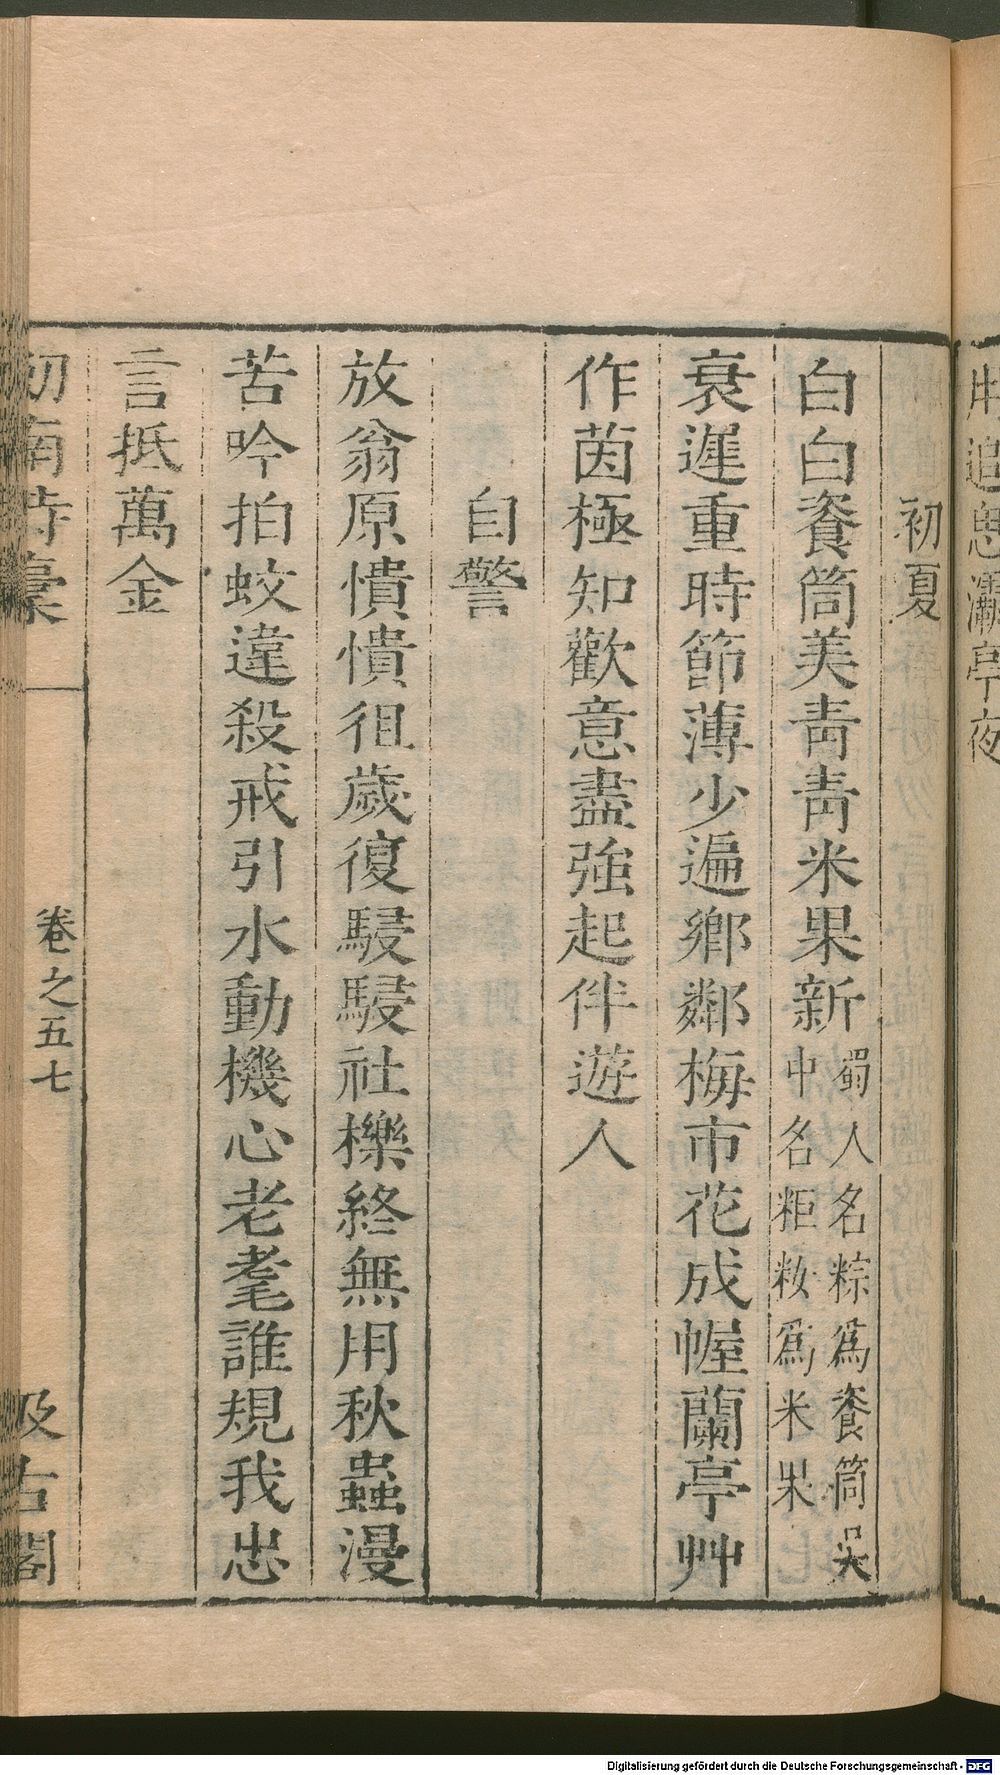 初夏
白白餈筒美青青米果新蜀人名粽爲餈筒吳
中名粔籹爲米果
衰遲重時節薄少遍鄉鄰梅市花成幄蘭亭艸
作茵極知歡意盡強起伴遊人
自警
放翁原憒憒徂歲復駸駸社櫟終無用秋蟲漫
苦吟拍蚊違殺戒引水動機心老耄誰規我忠
言抵萬金
劒南詩稾
卷之五七
汲古閣
追思灞亭夜
Digitalisierung gefördert durch die Deutsche Forschungsgemeinschaft - DFG